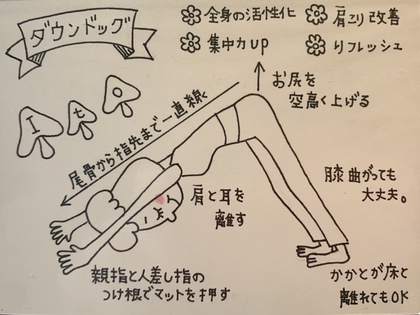 ダウンドッグ
全身の活性化
肩こり改善
集中力UP
リフレッシュ
お尻を
空高く上げる
エ
も
の
尾骨から指先まで一直線く
肩と耳を
離す
膝曲がっても
大丈夫。
親指と人差し指の
つけ根でマットを押す
かかとが床と
離れてもOK